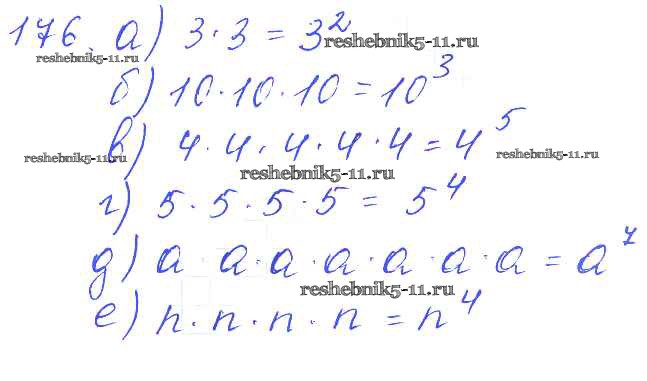 176. а) 3 · 3 = 3²
reshebnik5-11.ru
reshebnik5-11.ru
б) 10 · 10 · 10 = 10³
в) 4 · 4 · 4 · 4 · 4 = 4⁵
reshebnik5-11.ru
reshebnik5-11.ru
reshebnik5-11.ru
г) 5 · 5 · 5 · 5 = 5⁴
д) a · a · a · a · a · a · a = a⁷
reshebnik5-11.ru
е) n · n · n · n = n⁴